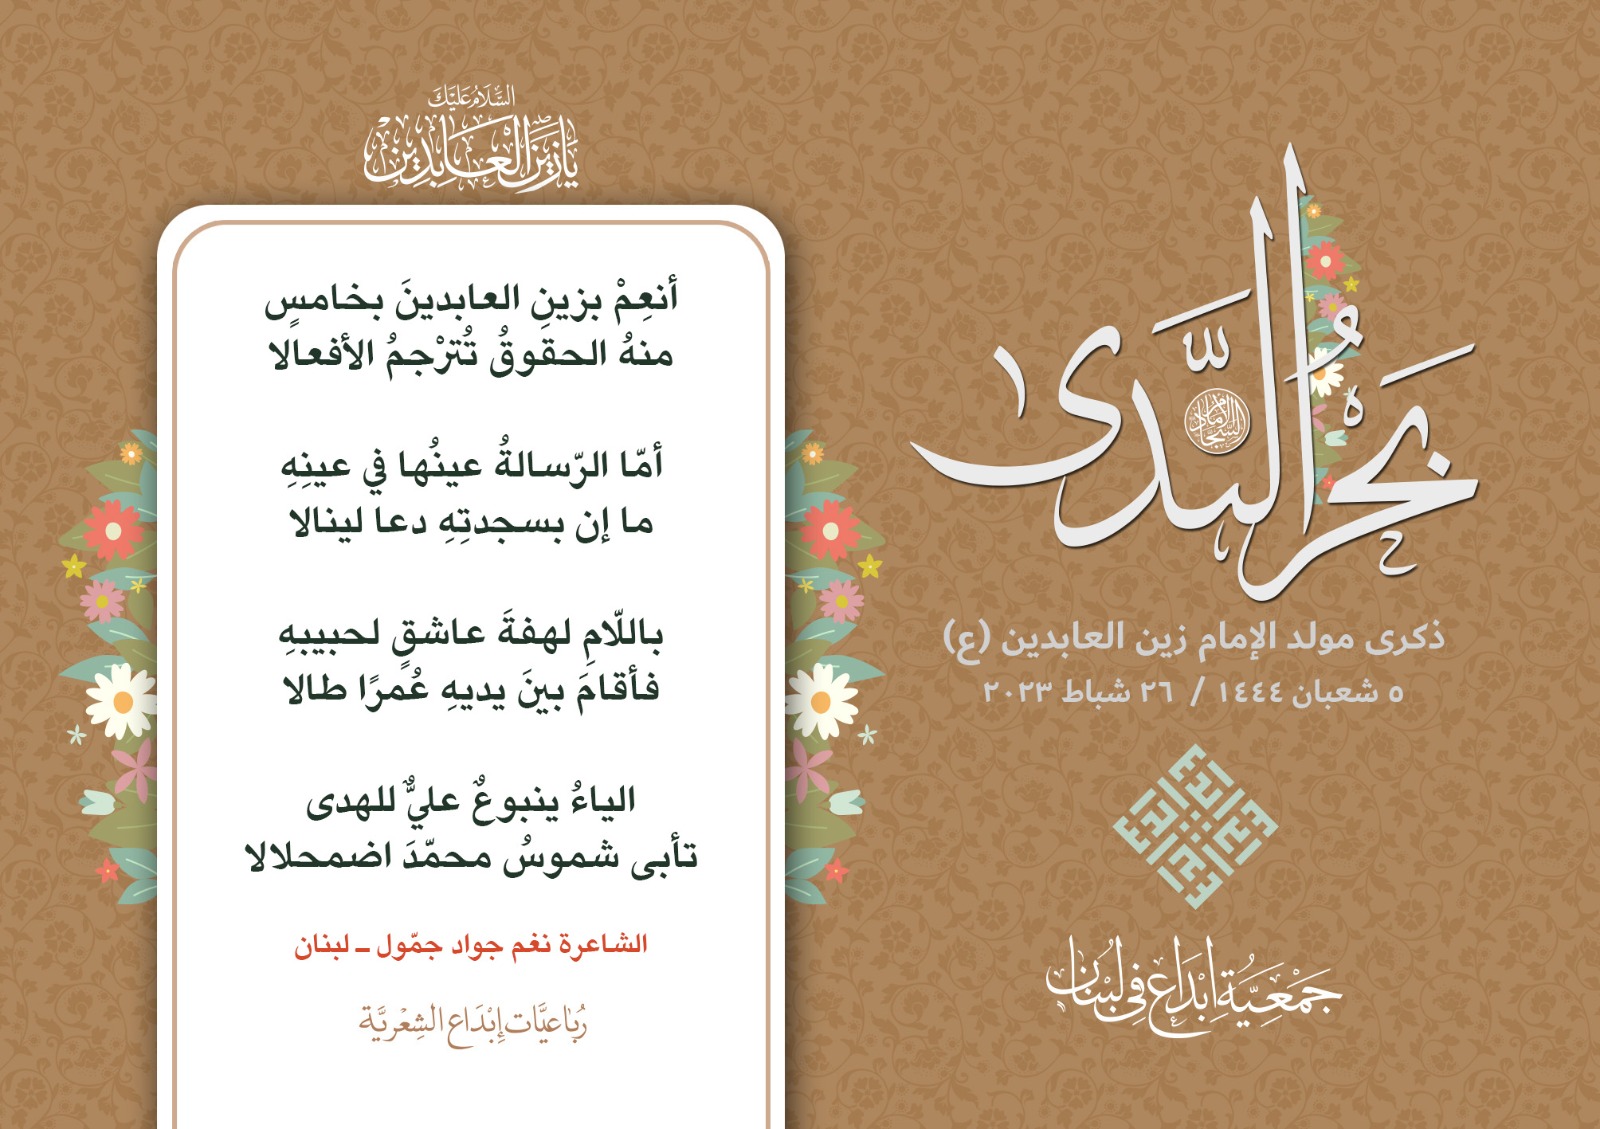 بَحْرُ النَّدى
الإمام السجّاد
ذكرى مولد الإمام زين العابدين (ع)
٥ شعبان ١٤٤٤ / ٢٦ شباط ٢٠٢٣
إبداع
جَمْعِيَّة إِبْدَاع فِي لُبْنَان
السَّلَامُ عَلَيْكَ
يَا زَيْنَ الْعَابِدِينَ
أنعِمْ بزينِ العابدينَ بخامسٍ
منهُ الحقوقُ تُترْجمُ الأفعالا
أمّا الرّسالةُ عينُها في عينِهِ
ما إن بسجدتِهِ دعا لينالا
باللّامِ لهفةَ عاشقٍ لحبيبهِ
فأقامَ بينَ يديهِ عُمرًا طالا
الياءُ ينبوعٌ عليٌّ للهدى
تأبى شموسُ محمّدَ اضمحلالا
الشاعرة نغم جواد جمّول ـ لبنان
رُبَاعِيَّات إِبْدَاع الشِعْرِيَّة